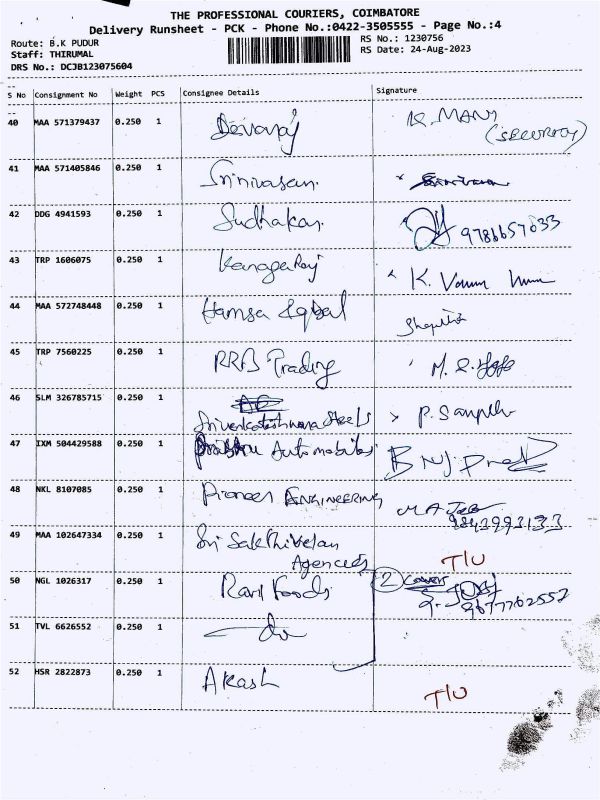 THE PROFESSIONAL COURIERS, COIMBATORE
Delivery Runsheet - PCK - Phone No.:0422-3505555 - Page No.:4
Route: B.K PUDUR RS No.: 1230756
Staff: THIRUMAL RS Date: 24-Aug-2023
DRS No.: DCJB123075604
S No Consignment No Weight PCS Consignee Details Signature
40 MAA 571379437 0.250 1 Devaraj K. MANI
(SECURITY)
41 MAA 571405846 0.250 1 Srinivasan.
42 DDG 4941593 0.250 1 Sudhakar. 9786657633
43 TRP 1606075 0.250 1 Kanagaraj K.
44 MAA 572748448 0.250 1 Hamsa Iqbal
45 TRP 7560225 0.250 1 RRB Trading
46 SLM 326785715 0.250 1
Srivenkateshwara Steels P. Sampath
47 IXM 504429588 0.250 1 Automobiles
48 NKL 8107085 0.250 1 Pioneer ENGINEERING
9843993133
49 MAA 102647334 0.250 1 Sri Sakthivelan
Agencies T/U
50 NGL 1026317 0.250 1 Ravi Foods 2 Covers
9677762552
51 TVL 6626552 0.250 1 do
52 HSR 2822873 0.250 1 Akash T/U